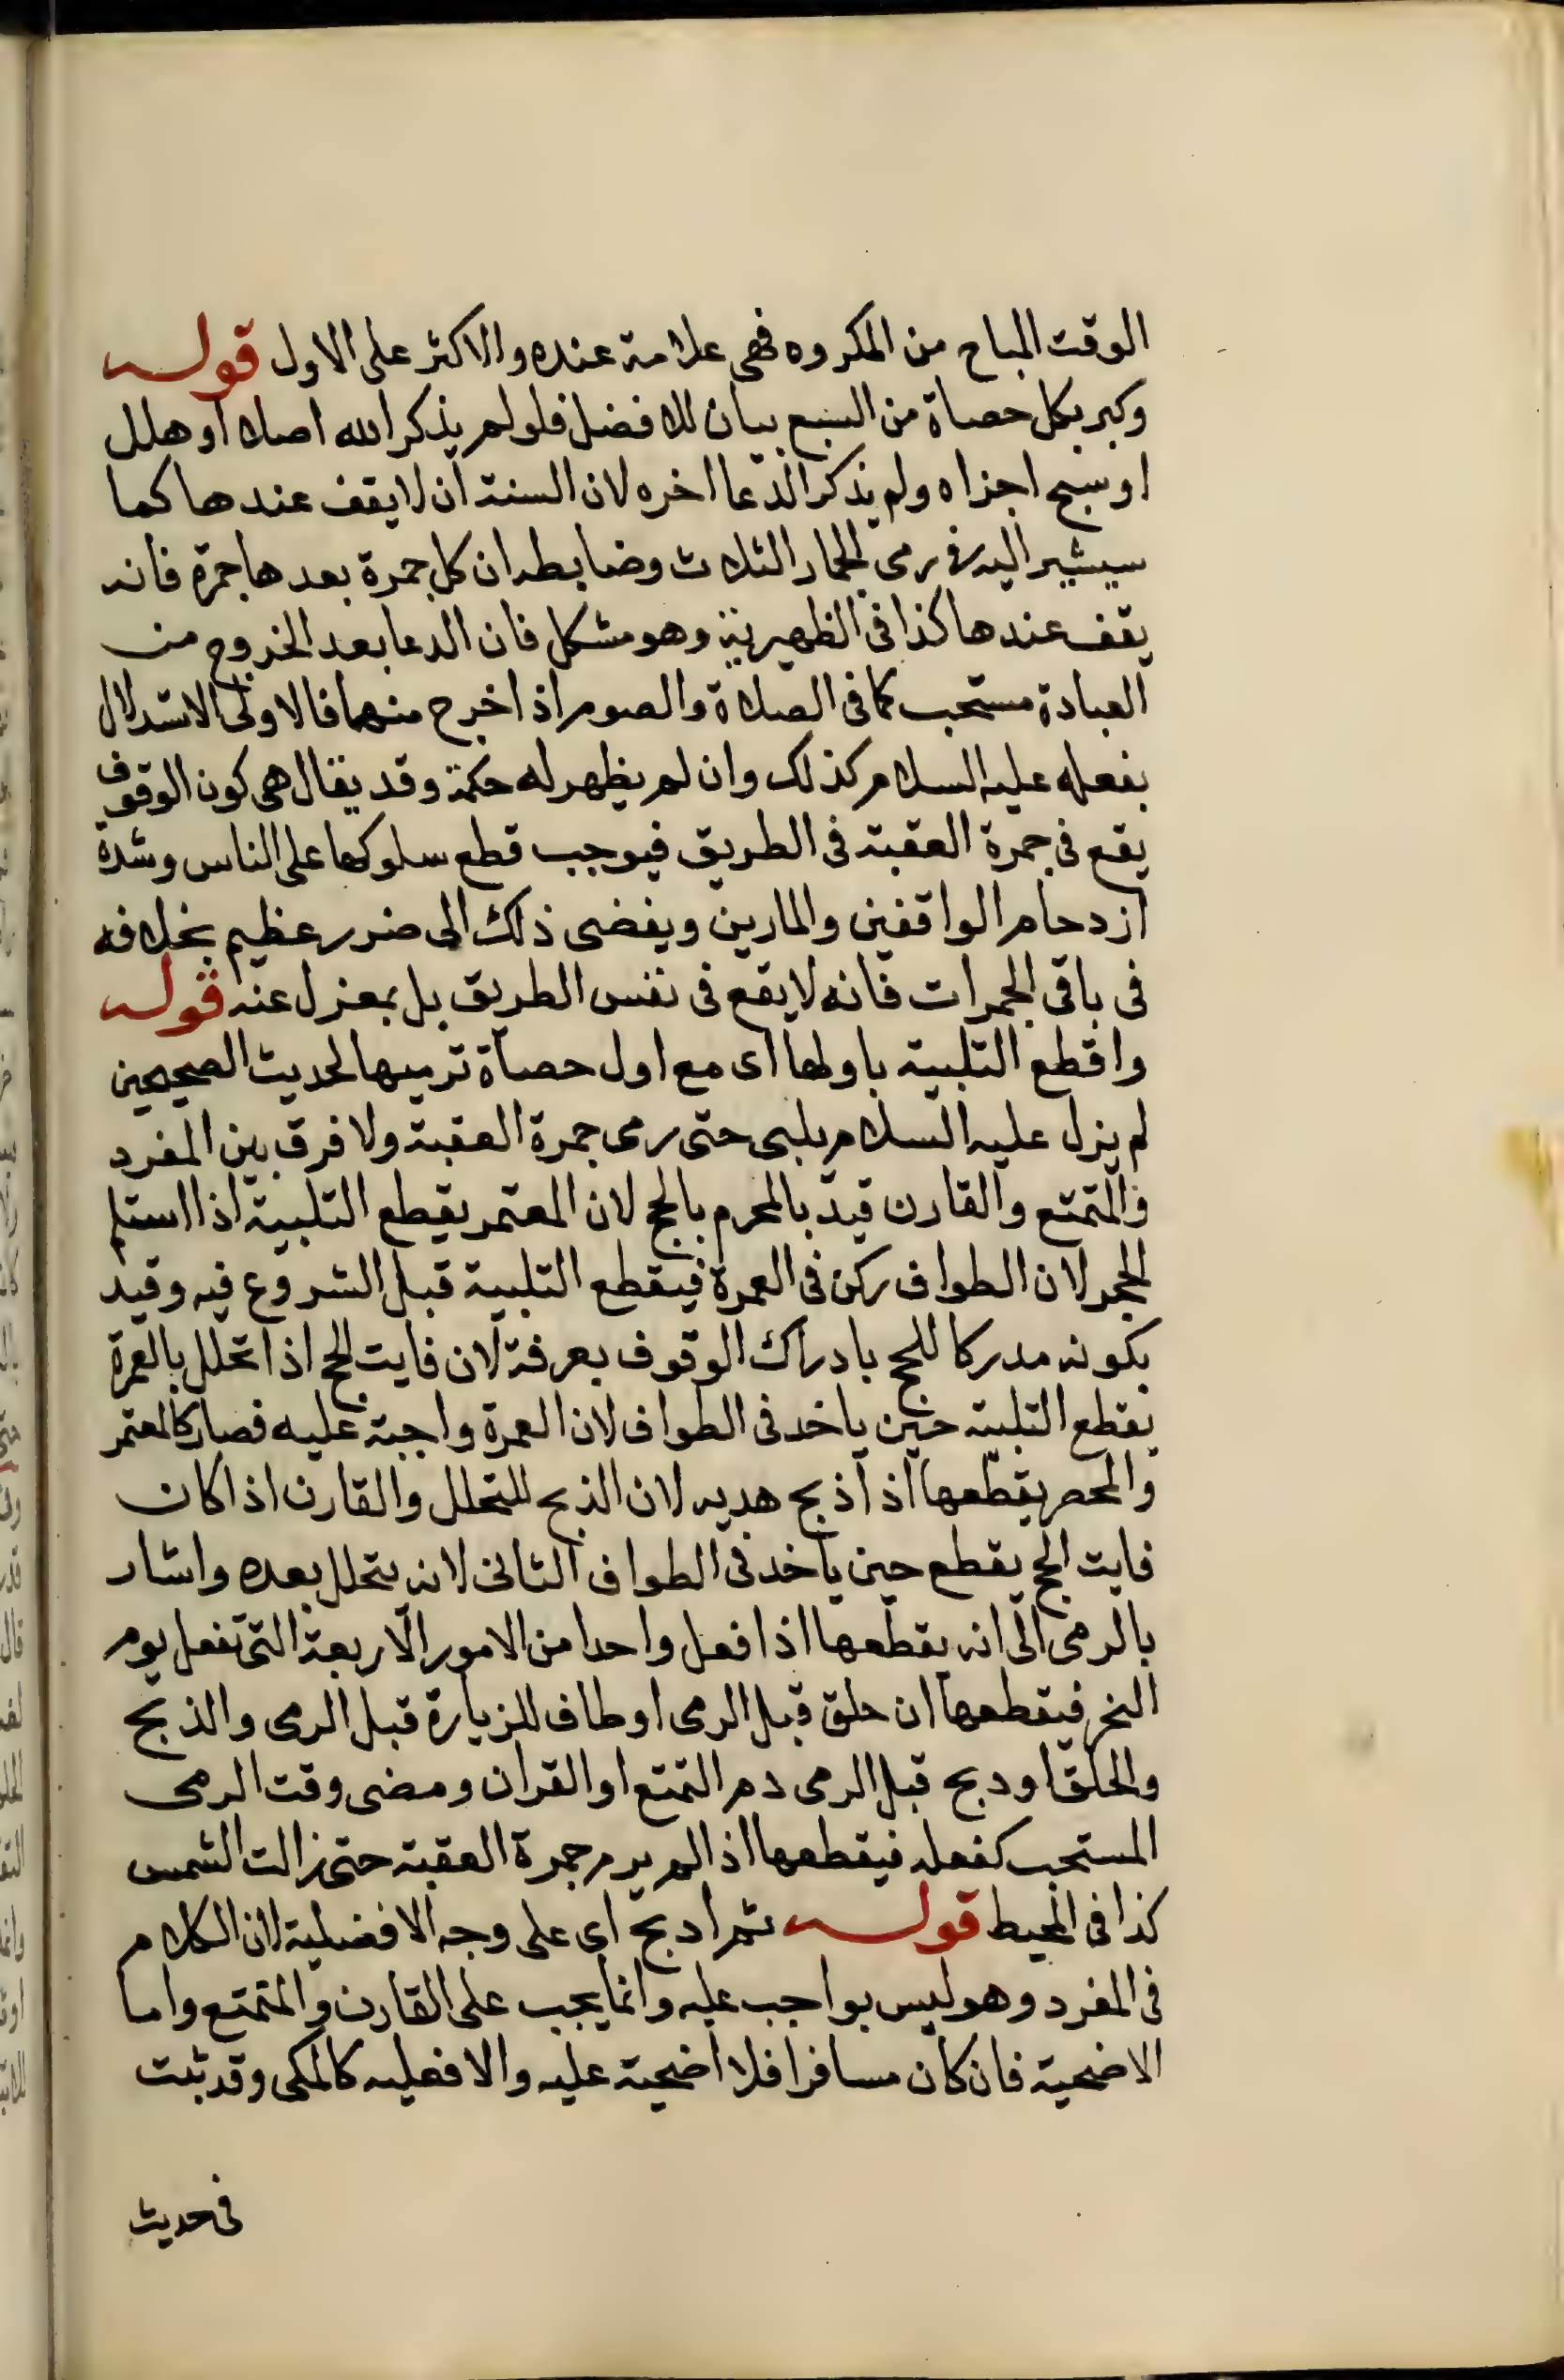 الوقت المباح من المكروه فهى علامة عنده والاكثر على الاول قوله
وكبر بكل حصاة من السبع بيان للافضل فلو لم يذكر الله اصلا او هلل
او سبح اجزاه ولم يذكر الدعا اخره لان السنة ان لا يقف عندها كما
سيشير اليه فى رمى الجمار الثلاث وضابطه ان كل جمرة بعدها جمرة فانه
يقف عندها كذا فى الظهيرية وهو مشكل فان الدعا بعد الخروج من
العبادة مستحب كما فى الصلاة والصوم اذا خرج منهما فالاولى الاستدلال
بفعله عليه السلام كذلك وان لم يظهر له حكمة وقد يقال هى كون الوقوف
يقع فى جمرة العقبة فى الطريق فيوجب قطع سلوكها على الناس وشدة
ازدحام الواقفين والمارين ويفضى ذلك الى ضرر عظيم بخلافه
فى باقى الجمرات فانه لا يقع فى نفس الطريق بل بمعزل عنه قوله
واقطع التلبية باولها اى مع اول حصاة ترميها لحديث الصحيحين
لم يزل عليه السلام يلبى حتى رمى جمرة العقبة ولا فرق بين المفرد
والمتمتع والقارن قيد بالمحرم بالحج لان المعتمر يقطع التلبية اذا استلم
الحجر لان الطواف ركن فى العمرة فيقطع التلبية قبل الشروع فيه وقيد
بكونه مدركا للحج بادراك الوقوف بعرفة لان فايت الحج اذا تحلل بالعمرة
يقطع التلبية حين ياخد فى الطواف لان العمرة واجبة عليه فصار كالمعتمر
والمحصر يقطعها اذا ذبح هديه لان الذبح للتحلل والقارن اذا كان
فايت الحج يقطع حين ياخد فى الطواف الثانى لانه يتحلل بعده واشار
بالرمى الى انه يقطعها اذا فعل واحدا من الامور الاربعة التى تفعل يوم
النحر فيقطعها ان حلق قبل الرمى او طاف للزيارة قبل الرمى والذبح
والحلق او دبح قبل الرمى دم التمتع او القران ومضى وقت الرمى
المستحب كفعله فيقطعها اذا لم يرم جمرة العقبة حتى زالت الشمس
كذا فى المحيط قوله ثم ادبح اى على وجه الافضلية لان الكلام
فى المفرد وهو ليس بواجب عليه وانما يجب على القارن والمتمتع واما
الاضحية فان كان مسافرا فلا اضحية عليه والا فعليه كالمكى وقد ثبت
فى حديث